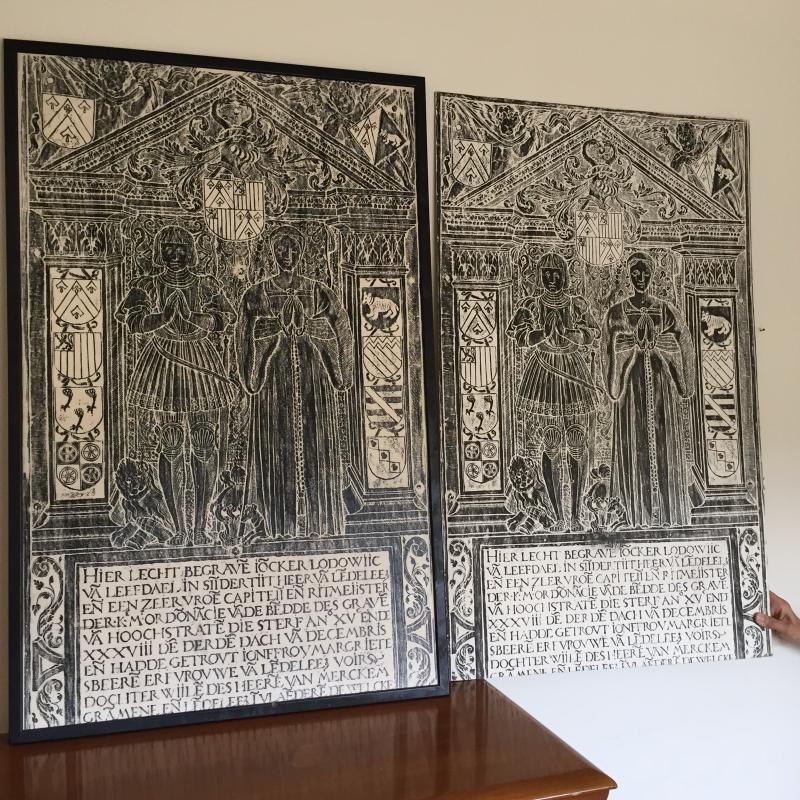 HIER LECHT BEGRAVĒ IŌCKER LODOWIIC
VĀ LEEFDAEL IN SIJDERTIIT HEER VĀ LĒDELEE
EN EEN ZEER VROĒ CAPITEIJ EN RITMEIJSTER
DER·K·M·ORDŌNĀCIE VĀDE BĒDDE DES GRAVĒ
VĀ HOOCHSTRATĒ DIE STERF AN° XV EN̄
XXXVIII DĒ DERDĒ DACH VĀ DECEMBRIS
EN HADDE GETROVT IQNFFROV MARGRIETE
SBEERE ERFVROVWE VĀ LĒDELEE VOIRSZ
DOCHTER WIJLĒ DES HEERĒ VAN MERCKEM
HIER LECHT BEGRAVĒ IŌCKER LODOWIIC
VĀ LEEFDAEL IN SIJDERTIIT HEER VĀ LĒDELEE
EN EEN ZEER VROĒ CAPITEIJ EN RITMEIJSTER
DER·K·M·ORDŌNĀCIE VĀDE BĒDDE DES GRAVĒ
VĀ HOOCHSTRATĒ DIE STERF AN° XV EN̄
XXXVIII DĒ DERDĒ DACH VĀ DECEMBRIS
EN HADDE GETROVT IQNFFROV MARGRIETE
SBEERE ERFVROVWE VĀ LĒDELEE VOIRSZ
DOCHTER WIJLĒ DES HEERĒ VAN MERCKEM